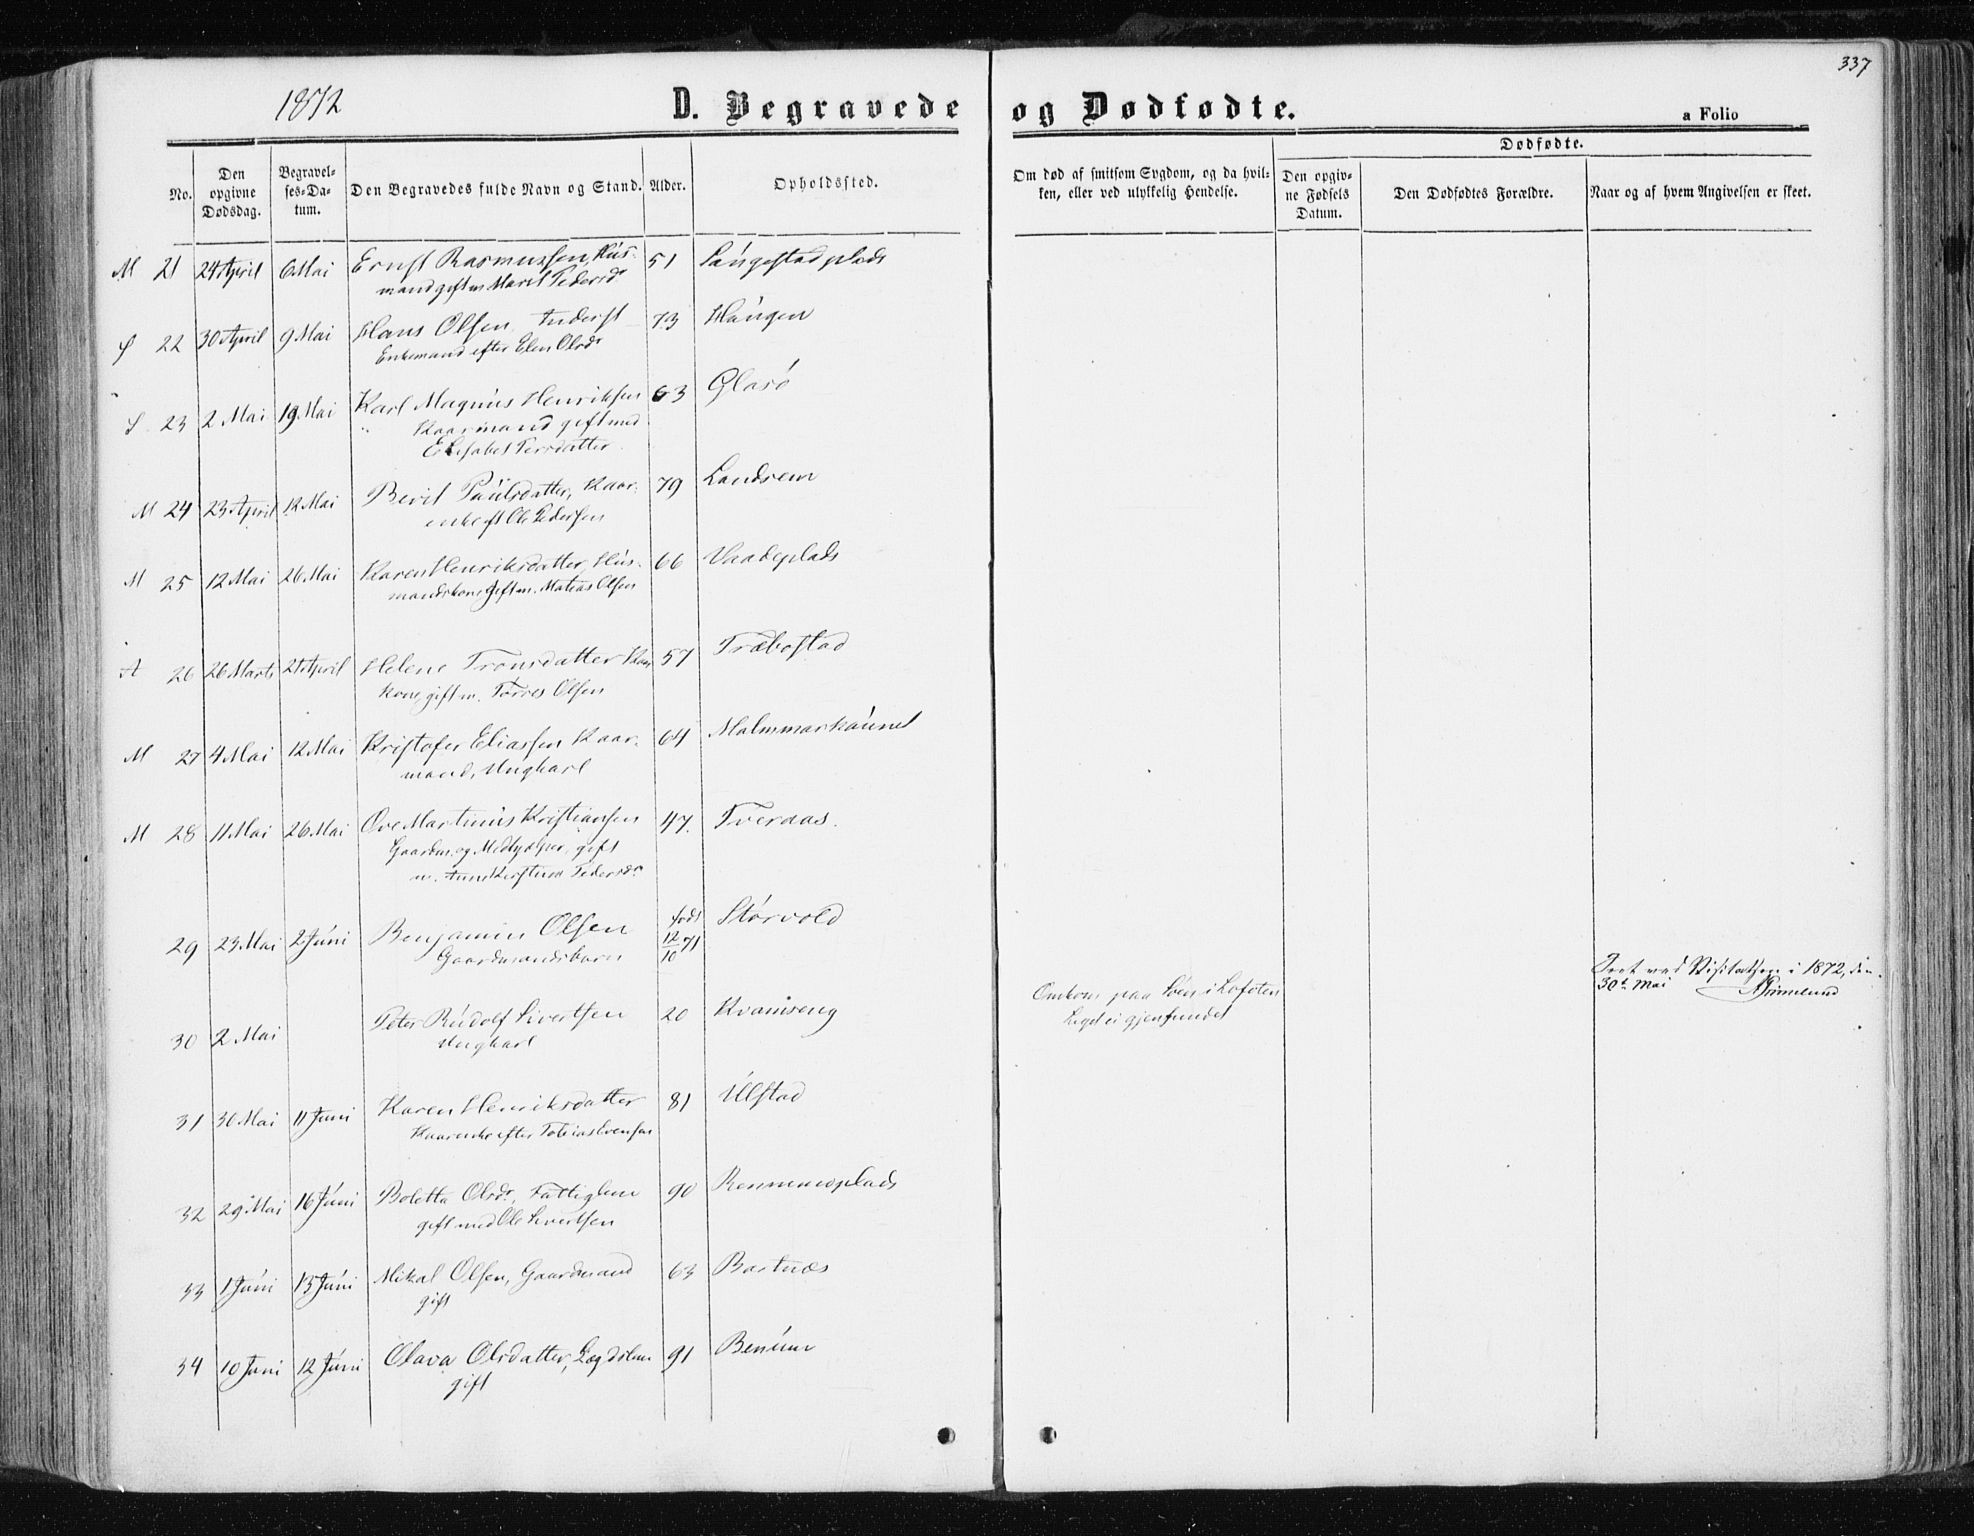 337
1872 D. Begravede og Dødfødte. a Folio
No.
Den opgivne Dødsdag.
Begravelses-Datum.
Den Begravedes fulde Navn og Stand.
Alder.
Opholdssted.
Om død af smitsom Sygdom, og da hvilken, eller ved ulykkelig Hendelse.
Dødfødte.
Den opgivne Fødsels Datum.
Den Dødfødtes Forældre.
Naar og af hvem Angivelsen er skeet.
M 21 24 April 6 Mai Ernst Rasmussen, Hus- 51
mand gift m Marit Pedersdr
22 30 April 9 Mai Hans Olsen 73 Haugen
Enkemand efter Elen Olsdr
23 2 Mai 19 Mai Karl Magnus Henriksen 63 Glasø
Kaarmand gift med
Elisabet Persdatter
M 24 23 April 12 Mai Berit Paulsdatter, Kaar- 79 Landsem
enke eft Ole Pedersen
M 25 12 Mai 26 Mai Karen Henriksdatter, Hus- 66 Vaadeplads
mandskone, gift m. Matias Olsen
A 26 26 Marts 21 April Helene Tronsdatter Kaar 57 Træbostad
kone, gift m. Torres Olsen
M 27 4 Mai 12 Mai Kristofer Eliassen Kaar- 64
mand, Ungkarl
M 28 11 Mai 26 Mai Ove Martinus Kristiansen 47. Tveraas.
Gaardm. og Medhjælper, gift
29 23 Mai 2 Juni Benjamin Olsen født 12/10 71 Størvold
Gaardmandsbarn
30 2 Mai Peter Rudolf Sivertsen 20 Kvamseng Omkom paa Søen i Lofoten
Ungkarl Liget ei gjenfundet
Seet ved Visitatsen i 1872, den
30te Mai
31 30 Mai 11 Juni Karen Henriksdatter 81 Ulstad
Kaarenke efter Tobias Evensen
32 29 Mai 16 Juni Boletta Olsdr, Fattiglem 90
gift med Ole Sivertsen
33 1 Juni 13 Juni Mikal Olsen, Gaardmand 63 Bartnæs
gift
34 10 Juni 12 Juni Olava Olsdatter, Lægdslem 91 Benum
gift